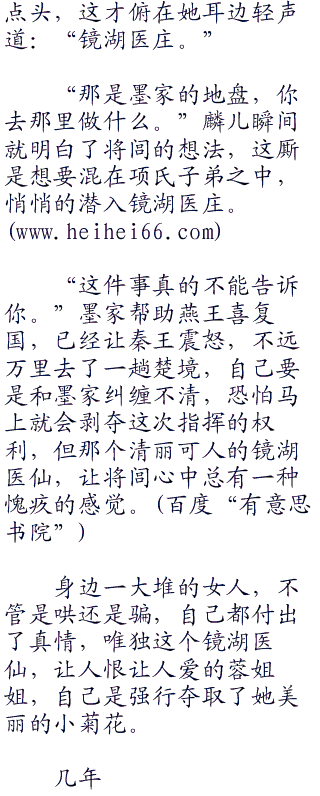 点头，这才俯在她耳边轻声
道：“镜湖医庄。”
“那是墨家的地盘，你
去那里做什么。”麟儿瞬间
就明白了将闾的想法，这厮
是想要混在项氏子弟之中，
悄悄的潜入镜湖医庄。
(www.heihei66.com)
“这件事真的不能告诉
你。”墨家帮助燕王喜复
国，已经让秦王震怒，不远
万里去了一趟楚境，自己要
是和墨家纠缠不清，恐怕马
上就会剥夺这次指挥的权
利，但那个清丽可人的镜湖
医仙，让将闾心中总有一种
愧疚的感觉。(百度“有意思
书院”)
身边一大堆的女人，不
管是哄还是骗，自己都付出
了真情，唯独这个镜湖医
仙，让人恨让人爱的蓉姐
姐，自己是强行夺取了她美
丽的小菊花。
几年